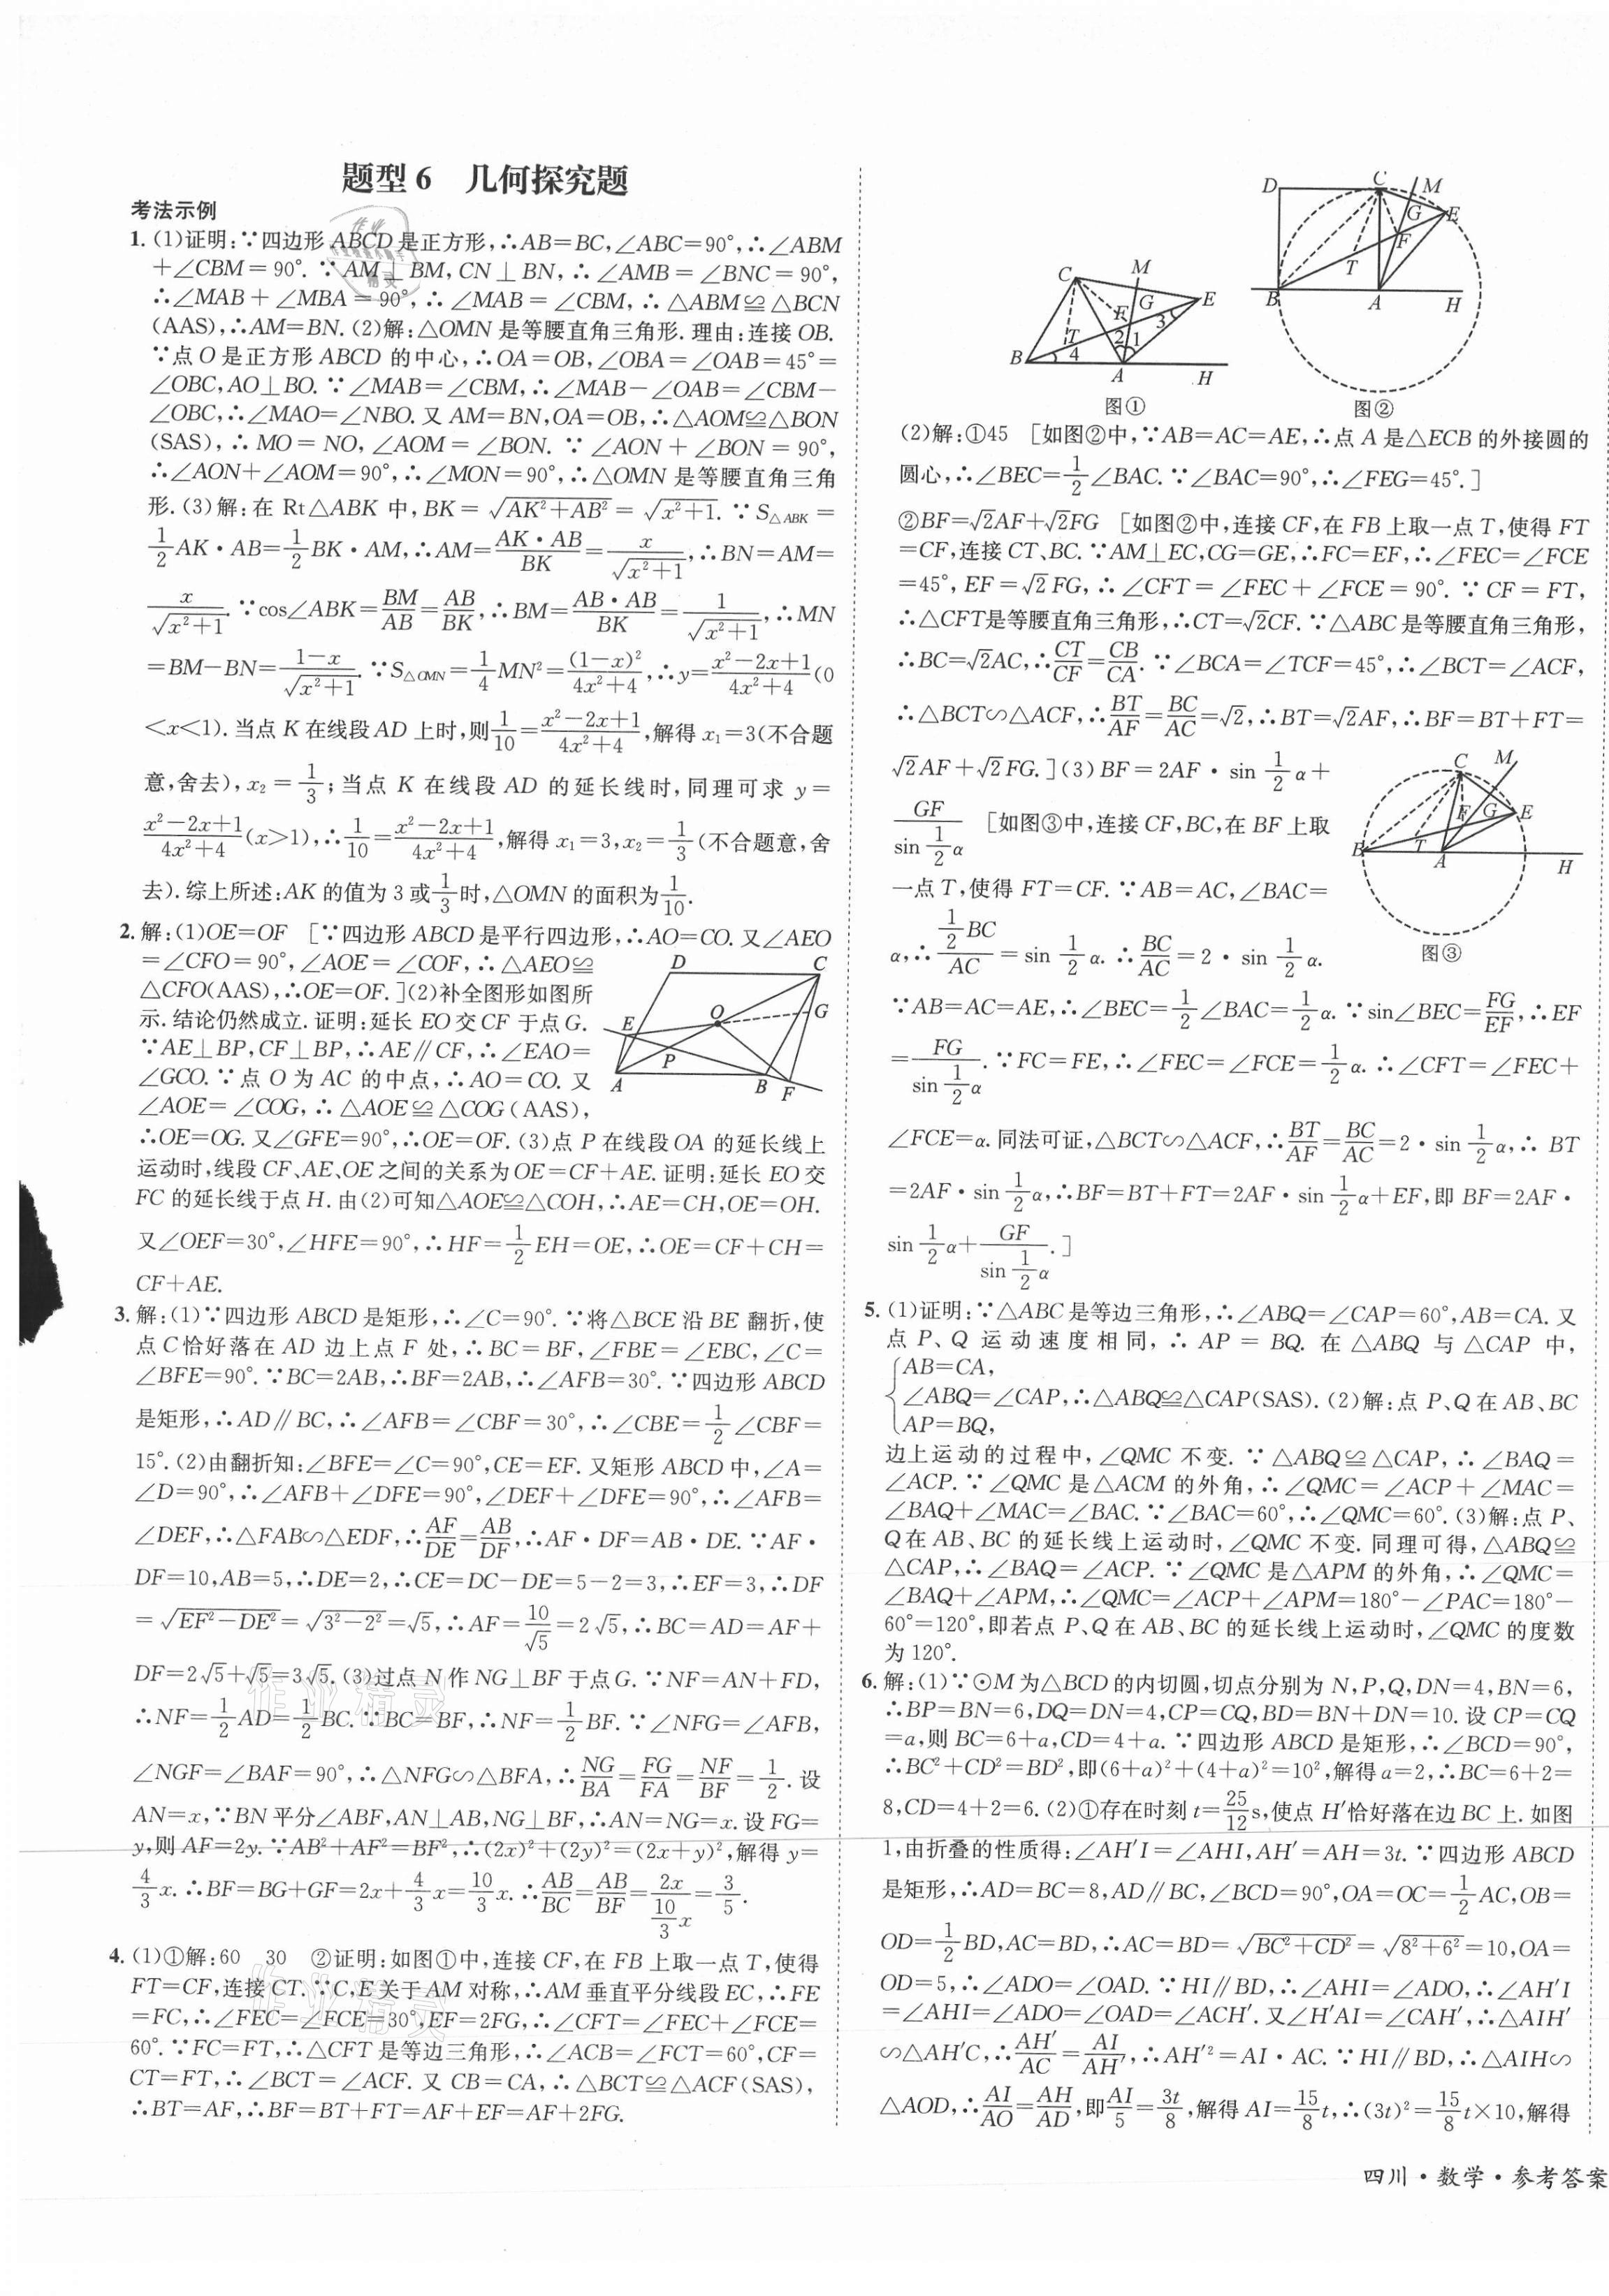 题型6 几何探究题
考法示例
1. (1)证明:∵四边形ABCD是正方形,∴AB=BC,∠ABC=90°,∴∠ABM
+∠CBM=90°. ∵AM⊥BM,CN⊥BN,∴∠AMB=∠BNC=90°,
∴∠MAB+∠MBA=90°,∴∠MAB=∠CBM,∴△ABM≌△BCN
(AAS),∴AM=BN. (2)解:△OMN是等腰直角三角形.理由:连接OB.
∵点O是正方形ABCD的中心,∴OA=OB,∠OBA=∠OAB=45°=
∠OBC,AO⊥BO. ∵∠MAB=∠CBM,∴∠MAB-∠OAB=∠CBM-
∠OBC,∴∠MAO=∠NBO. 又AM=BN,OA=OB,∴△AOM≌△BON
(SAS),∴MO=NO,∠AOM=∠BON. ∵∠AON+∠BON=90°,
∴∠AON+∠AOM=90°,∴∠MON=90°,∴△OMN是等腰直角三角
形. (3)解:在Rt△ABK中,BK=√(AK²+AB²)=√(x²+1). ∵S△ABK=
1/2 AK·AB=1/2 BK·AM,∴AM=(AK·AB)/BK=x/√(x²+1),∴BN=AM=
x/√(x²+1). ∵cos∠ABK=BM/AB=AB/BK,∴BM=(AB·AB)/BK=1/√(x²+1),∴MN
=BM-BN=(1-x)/√(x²+1). ∵S△OMN=1/4 MN²=(1-x)²/(4x²+4),∴y=(x²-2x+1)/(4x²+4)(0
<x<1). 当点K在线段AD上时,则1/10=(x²-2x+1)/(4x²+4),解得x₁=3(不合题
意,舍去),x₂=1/3;当点K在线段AD的延长线时,同理可求y=
(x²-2x+1)/(4x²+4)(x>1),∴1/10=(x²-2x+1)/(4x²+4),解得x₁=3,x₂=1/3(不合题意,舍
去).综上所述:AK的值为3或1/3时,△OMN的面积为1/10.
2. 解:(1)OE=OF [∵四边形ABCD是平行四边形,∴AO=CO. 又∠AEO
=∠CFO=90°,∠AOE=∠COF,∴△AEO≌
△CFO(AAS),∴OE=OF.](2)补全图形如图所
示.结论仍然成立.证明:延长EO交CF于点G.
∵AE⊥BP,CF⊥BP,∴AE∥CF,∴∠EAO=
∠GCO. ∵点O为AC的中点,∴AO=CO. 又
∠AOE=∠COG,∴△AOE≌△COG(AAS),
D C O G E P A B F
∴OE=OG. 又∠GFE=90°,∴OE=OF. (3)点P在线段OA的延长线上
运动时,线段CF、AE、OE之间的关系为OE=CF+AE. 证明:延长EO交
FC的延长线于点H. 由(2)可知△AOE≌△COH,∴AE=CH,OE=OH.
又∠OEF=30°,∠HFE=90°,∴HF=1/2 EH=OE,∴OE=CF+CH=
CF+AE.
3. 解:(1)∵四边形ABCD是矩形,∴∠C=90°. ∵将△BCE沿BE翻折,使
点C恰好落在AD边上点F处,∴BC=BF,∠FBE=∠EBC,∠C=
∠BFE=90°. ∵BC=2AB,∴BF=2AB,∴∠AFB=30°. ∵四边形ABCD
是矩形,∴AD∥BC,∴∠AFB=∠CBF=30°,∴∠CBE=1/2 ∠CBF=
15°. (2)由翻折知:∠BFE=∠C=90°,CE=EF. 又矩形ABCD中,∠A=
∠D=90°,∴∠AFB+∠DFE=90°,∠DEF+∠DFE=90°,∴∠AFB=
∠DEF,∴△FAB∽△EDF,∴AF/DE=AB/DF,∴AF·DF=AB·DE. ∵AF·
DF=10,AB=5,∴DE=2,∴CE=DC-DE=5-2=3,∴EF=3,∴DF
=√(EF²-DE²)=√(3²-2²)=√5,∴AF=10/√5=2√5,∴BC=AD=AF+
DF=2√5+√5=3√5. (3)过点N作NG⊥BF于点G. ∵NF=AN+FD,
∴NF=1/2 AD=1/2 BC. ∵BC=BF,∴NF=1/2 BF. ∵∠NFG=∠AFB,
∠NGF=∠BAF=90°,∴△NFG∽△BFA,∴NG/BA=FG/FA=NF/BF=1/2. 设
AN=x,∵BN平分∠ABF,AN⊥AB,NG⊥BF,∴AN=NG=x. 设FG=
y,则AF=2y. ∵AB²+AF²=BF²,∴(2x)²+(2y)²=(2x+y)²,解得y=
4/3 x. ∴BF=BG+GF=2x+4/3 x=10/3 x. ∴AB/BC=AB/BF=2x/(10/3 x)=3/5.
4. (1)①解:60 30 ②证明:如图①中,连接CF,在FB上取一点T,使得
FT=CF,连接CT. ∵C,E关于AM对称,∴AM垂直平分线段EC,∴FE
=FC,∴∠FEC=∠FCE=30°,EF=2FG,∴∠CFT=∠FEC+∠FCE=
60°. ∵FC=FT,∴△CFT是等边三角形,∴∠ACB=∠FCT=60°,CF=
CT=FT,∴∠BCT=∠ACF. 又CB=CA,∴△BCT≌△ACF(SAS),
∴BT=AF,∴BF=BT+FT=AF+EF=AF+2FG.
C M E G F T 3 2 1 4 B A H
图①
D C M G E F T B A H
图②
(2)解:①45 [如图②中,∵AB=AC=AE,∴点A是△ECB的外接圆的
圆心,∴∠BEC=1/2 ∠BAC. ∵∠BAC=90°,∴∠FEG=45°.]
②BF=√2AF+√2FG [如图②中,连接CF,在FB上取一点T,使得FT
=CF,连接CT、BC. ∵AM⊥EC,CG=GE,∴FC=EF,∴∠FEC=∠FCE
=45°,EF=√2FG,∴∠CFT=∠FEC+∠FCE=90°. ∵CF=FT,
∴△CFT是等腰直角三角形,∴CT=√2CF. ∵△ABC是等腰直角三角形,
∴BC=√2AC,∴CT/CF=CB/CA. ∵∠BCA=∠TCF=45°,∴∠BCT=∠ACF,
∴△BCT∽△ACF,∴BT/AF=BC/AC=√2,∴BT=√2AF,∴BF=BT+FT=
√2AF+√2FG.](3)BF=2AF·sin 1/2 α+
GF/(sin 1/2 α) [如图③中,连接CF,BC,在BF上取
一点T,使得FT=CF. ∵AB=AC,∠BAC=
α,∴(1/2 BC)/AC=sin 1/2 α. ∴BC/AC=2·sin 1/2 α.
C M F G E B T A H
图③
∵AB=AC=AE,∴∠BEC=1/2 ∠BAC=1/2 α. ∵sin∠BEC=FG/EF,∴EF
=FG/(sin 1/2 α). ∵FC=FE,∴∠FEC=∠FCE=1/2 α. ∴∠CFT=∠FEC+
∠FCE=α. 同法可证,△BCT∽△ACF,∴BT/AF=BC/AC=2·sin 1/2 α,∴BT
=2AF·sin 1/2 α,∴BF=BT+FT=2AF·sin 1/2 α+EF,即BF=2AF·
sin 1/2 α+GF/(sin 1/2 α).]
5. (1)证明:∵△ABC是等边三角形,∴∠ABQ=∠CAP=60°,AB=CA. 又
点P、Q运动速度相同,∴AP=BQ. 在△ABQ与△CAP中,
{AB=CA,
∠ABQ=∠CAP,∴△ABQ≌△CAP(SAS). (2)解:点P、Q在AB、BC
AP=BQ,
边上运动的过程中,∠QMC不变. ∵△ABQ≌△CAP,∴∠BAQ=
∠ACP. ∵∠QMC是△ACM的外角,∴∠QMC=∠ACP+∠MAC=
∠BAQ+∠MAC=∠BAC. ∵∠BAC=60°,∴∠QMC=60°. (3)解:点P、
Q在AB、BC的延长线上运动时,∠QMC不变.同理可得,△ABQ≌
△CAP,∴∠BAQ=∠ACP. ∵∠QMC是△APM的外角,∴∠QMC=
∠BAQ+∠APM,∴∠QMC=∠ACP+∠APM=180°-∠PAC=180°-
60°=120°,即若点P、Q在AB、BC的延长线上运动时,∠QMC的度数
为120°.
6. 解:(1)∵⊙M为△BCD的内切圆,切点分别为N,P,Q,DN=4,BN=6,
∴BP=BN=6,DQ=DN=4,CP=CQ,BD=BN+DN=10. 设CP=CQ
=a,则BC=6+a,CD=4+a. ∵四边形ABCD是矩形,∴∠BCD=90°,
∴BC²+CD²=BD²,即(6+a)²+(4+a)²=10²,解得a=2,∴BC=6+2=
8,CD=4+2=6. (2)①存在时刻t=25/12 s,使点H′恰好落在边BC上.如图
1,由折叠的性质得:∠AH′I=∠AHI,AH′=AH=3t. ∵四边形ABCD
是矩形,∴AD=BC=8,AD∥BC,∠BCD=90°,OA=OC=1/2 AC,OB=
OD=1/2 BD,AC=BD,∴AC=BD=√(BC²+CD²)=√(8²+6²)=10,OA=
OD=5,∴∠ADO=∠OAD. ∵HI∥BD,∴∠AHI=∠ADO,∴∠AH′I
=∠AHI=∠ADO=∠OAD=∠ACH′. 又∠H′AI=∠CAH′,∴△AIH′
∽△AH′C,∴AH′/AC=AI/AH′,∴AH′²=AI·AC. ∵HI∥BD,∴△AIH∽
△AOD,∴AI/AO=AH/AD,即AI/5=3t/8,解得AI=15/8 t,∴(3t)²=15/8 t×10,解得
四川·数学·参考答案